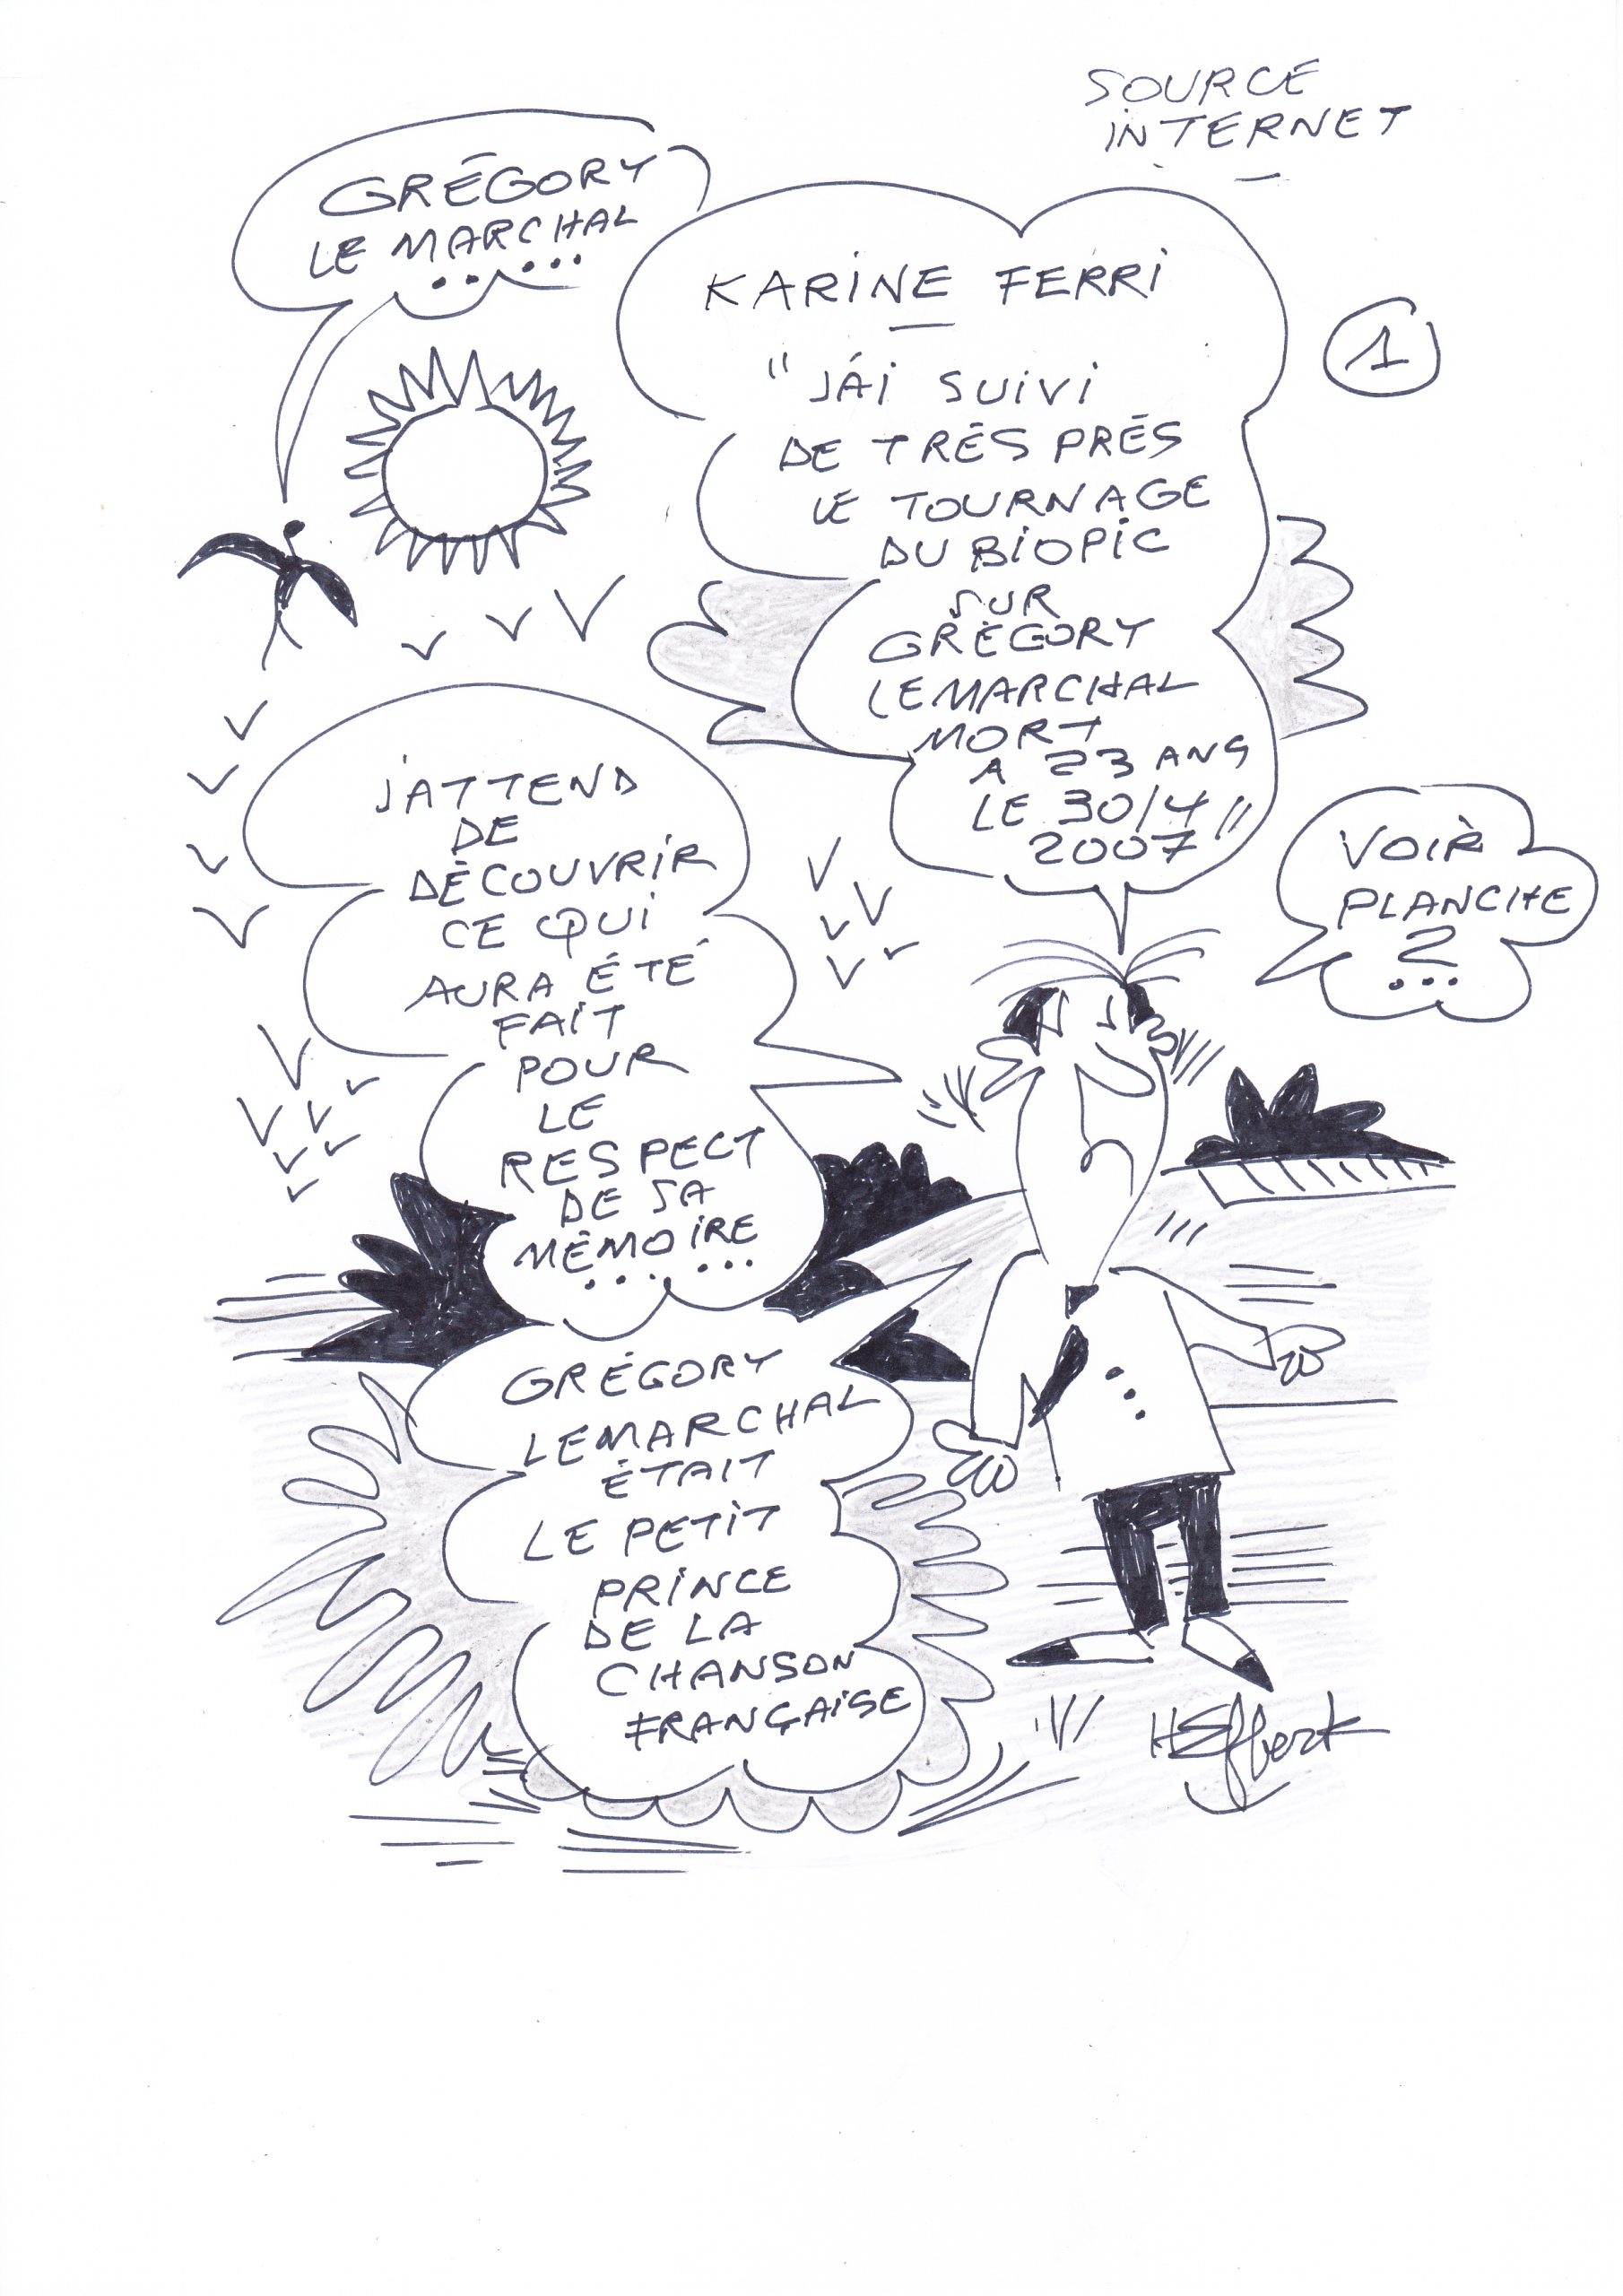 SOURCE
INTERNET
GRÉGORY
LE MARCHAL
.. ...
KARINE FERRI
1
"J'AI SUIVI
DE TRÉS PRÉS
LE TOURNAGE
DU BIOPIC
SUR
GRÉGORY
LEMARCHAL
MORT
A 23 ANS
LE 30/4
2007"
VOIR
PLANCHE
2
...
J'ATTEND
DE
DÉCOUVRIR
CE QUI
AURA ÉTÉ
FAIT
POUR
LE
RESPECT
DE SA
MÉMOIRE
... ...
GRÉGORY
LEMARCHAL
ÉTAIT
LE PETIT
PRINCE
DE LA
CHANSON
FRANÇAISE